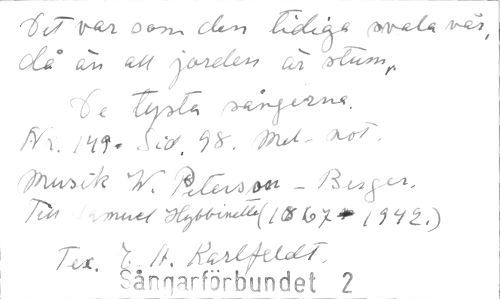 Det var som den tidiga svala vår,
då än all jorden är stum,,
De tysta sångerna.
Nr. 149. Sid. 98. Mel. not.
Musik W. Peterson - Berger.
Till Samuel Hybbinette (1867 - 1942.)
Tex. E. A. Karlfeldt.
Sångarförbundet 2